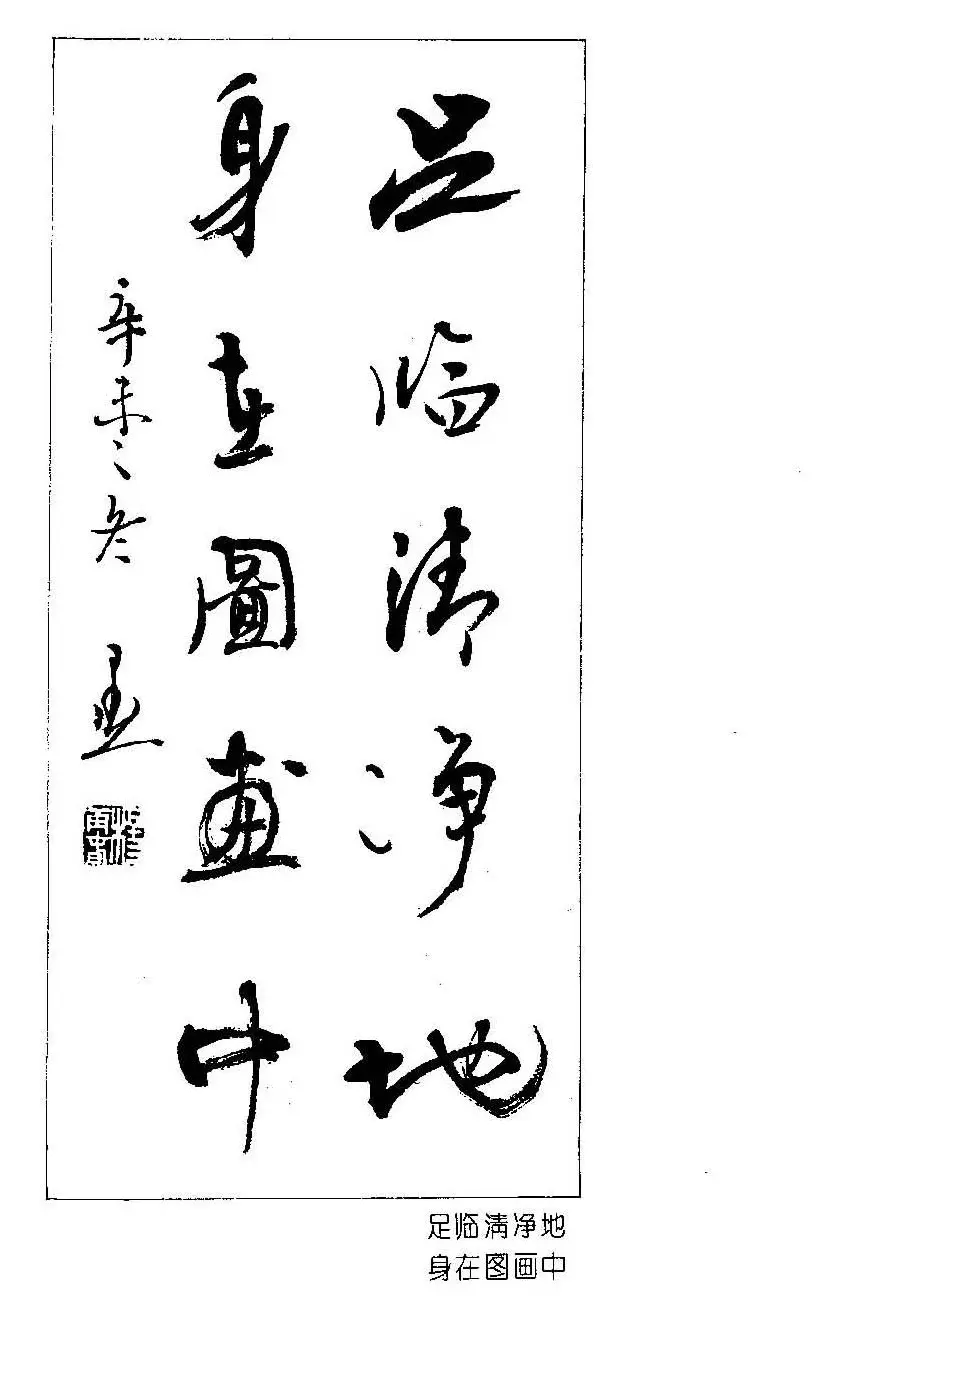 足临清净地
身在圖畫中
辛未之冬
足临清净地
身在图画中